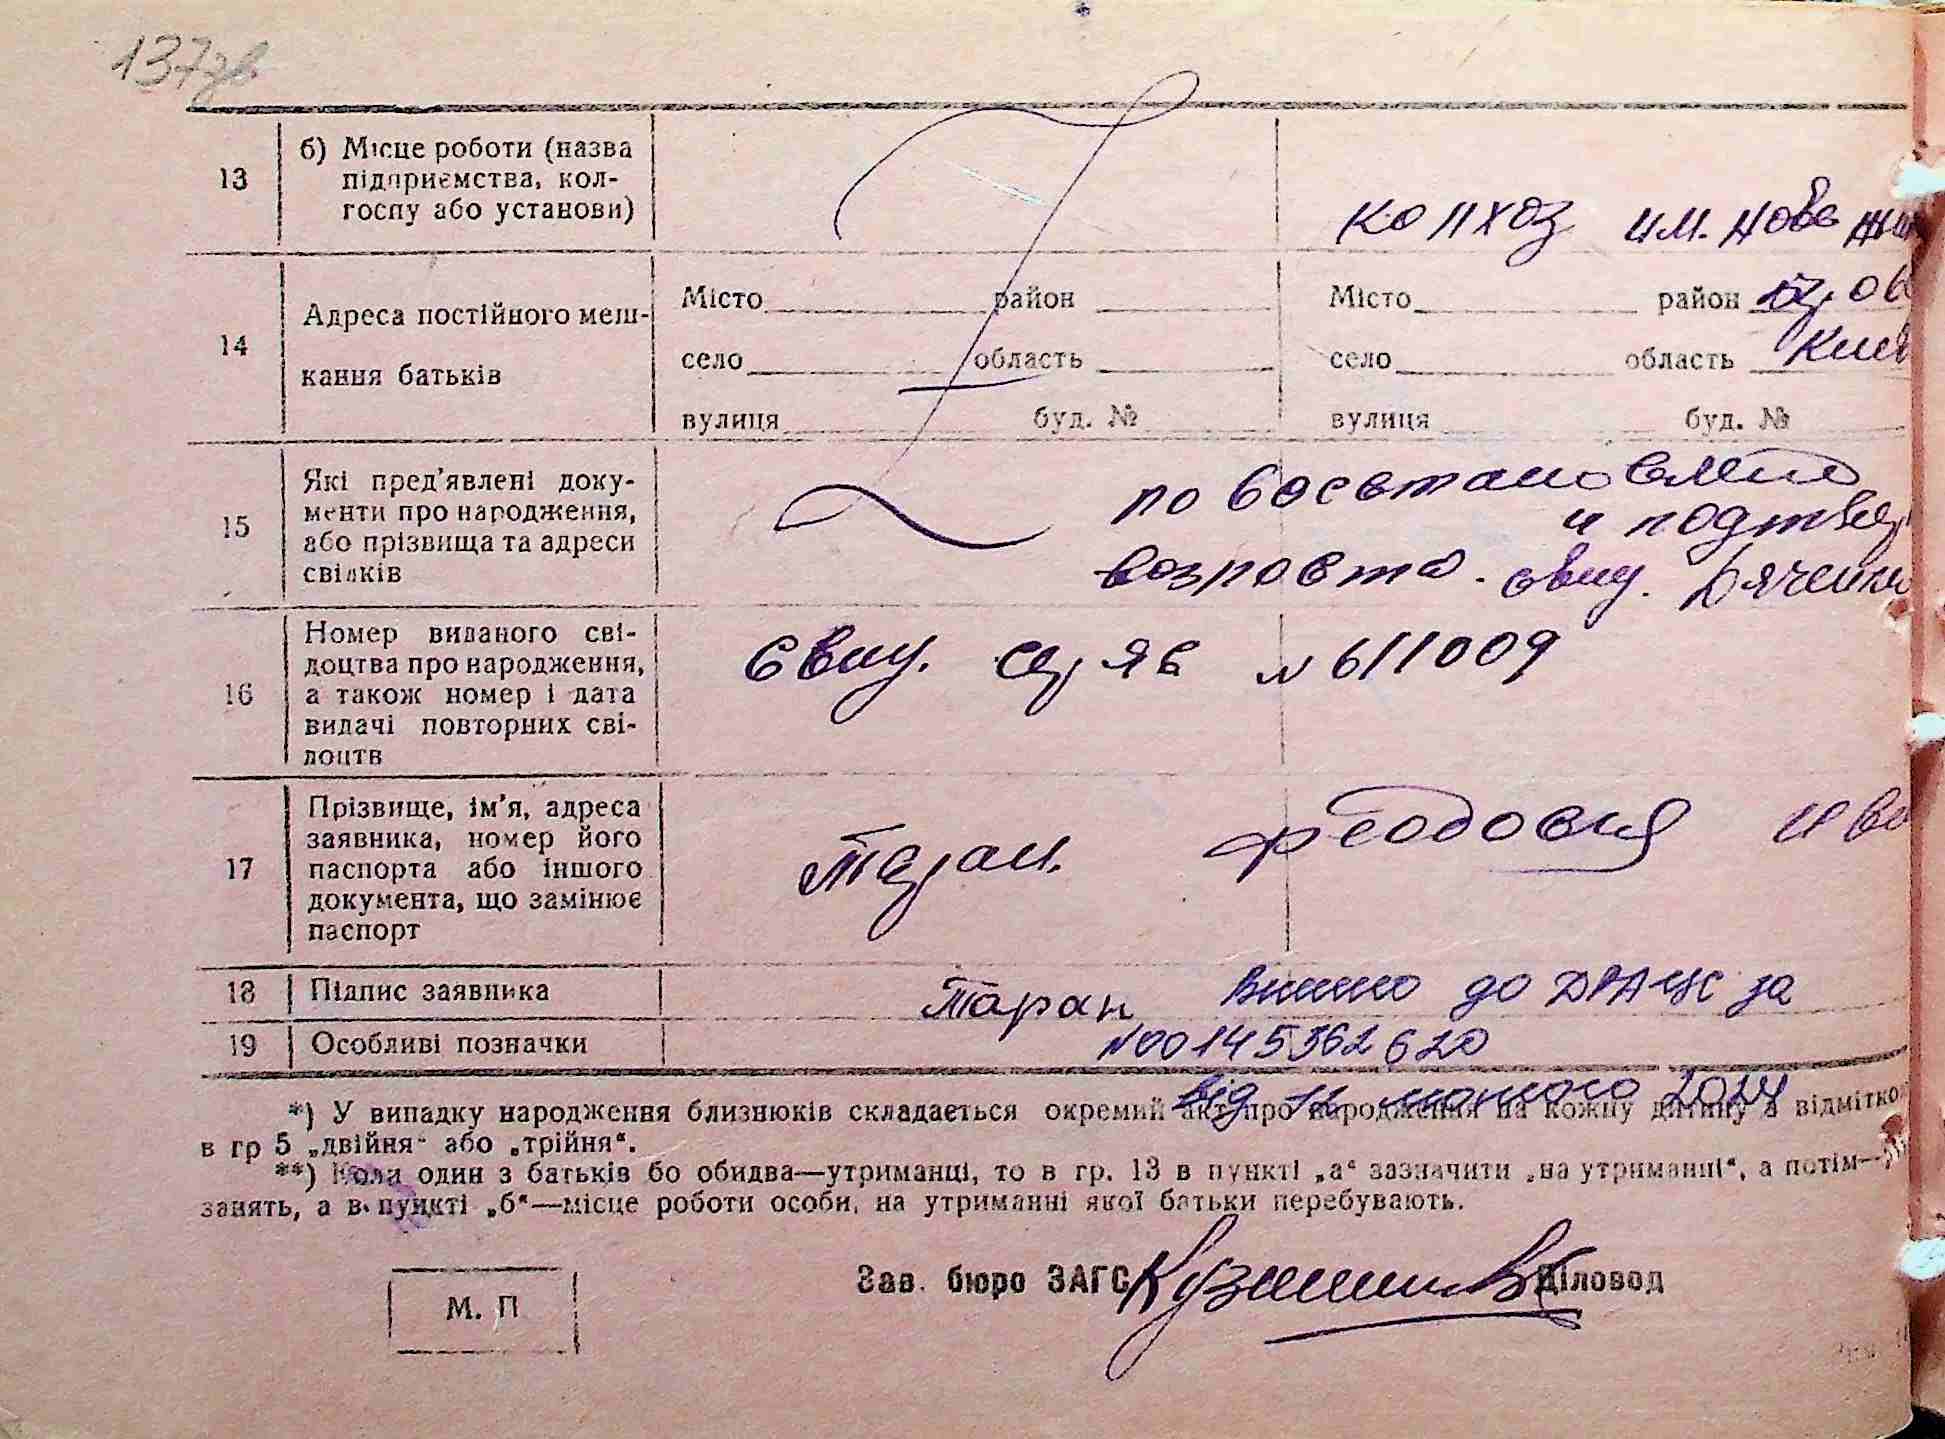 137зв
13 б) Місце роботи (назва
підприємства, кол-
госпу або установи)
колхоз им. Нове
14 Адреса постійного меш-
кання батьків
Місто район Місто район
село область село область Киев
вулиця буд. № вулиця буд. №
15 Які пред'явлені доку-
менти про народження,
або прізвища та адреси
свідків
по восстановлен
и подтвер
возраста. свид. Дяченк
16 Номер виданого сві-
доцтва про народження,
а також номер і дата
видачі повторних сві-
доцтв
Свид. ЯБ № 611009
17 Прізвище, ім'я, адреса
заявника, номер його
паспорта або іншого
документа, що замінює
паспорт
Таран. Феодосия Ива
18 Підпис заявника Таран внесено до ДРАЦС за
19 Особливі позначки №00145362620
від 12 лютого 2024
*) У випадку народження близнюків складається окремий акт про народження на кожну дитину з відмітко
в гр 5 „двійня“ або „трійня“.
**) Коли один з батьків бо обидва—утриманці, то в гр. 13 в пункті „а“ зазначити „на утриманні“, а потім—
занять, а в пункті „б“—місце роботи особи, на утриманні якої батьки перебувають.
Зав. бюро ЗАГС Діловод
М. П